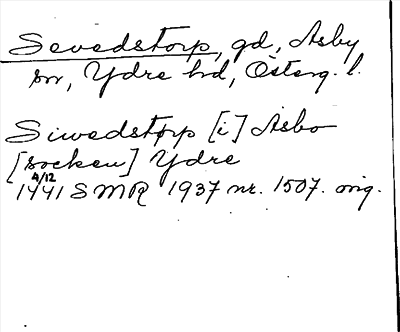 Sevedstorp, gd, Asby
sn, Ydre hd, Österg. l.
Siwedstorp [i] Asbo
[socken] Ydre
4/12
1441 SMR 1937 nr. 1507. orig.